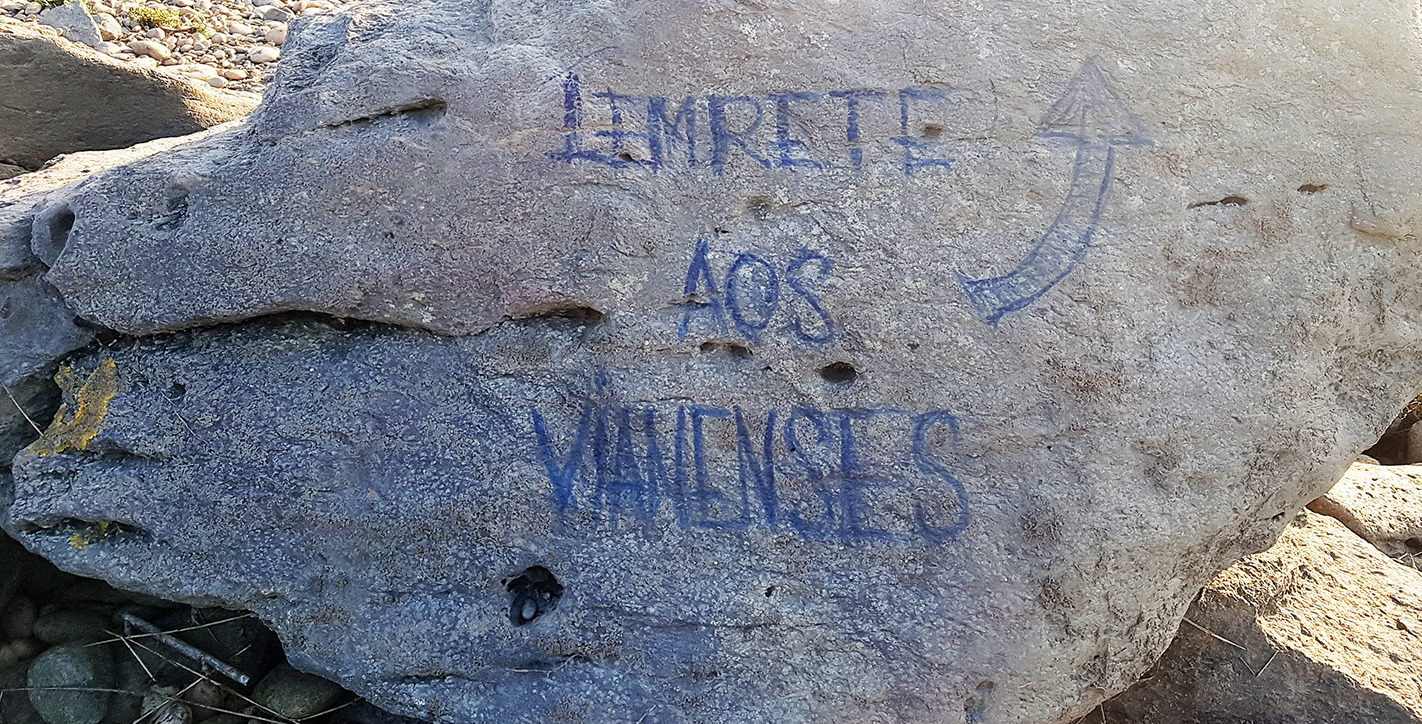 LEMRETE
AOS
VIANENSES